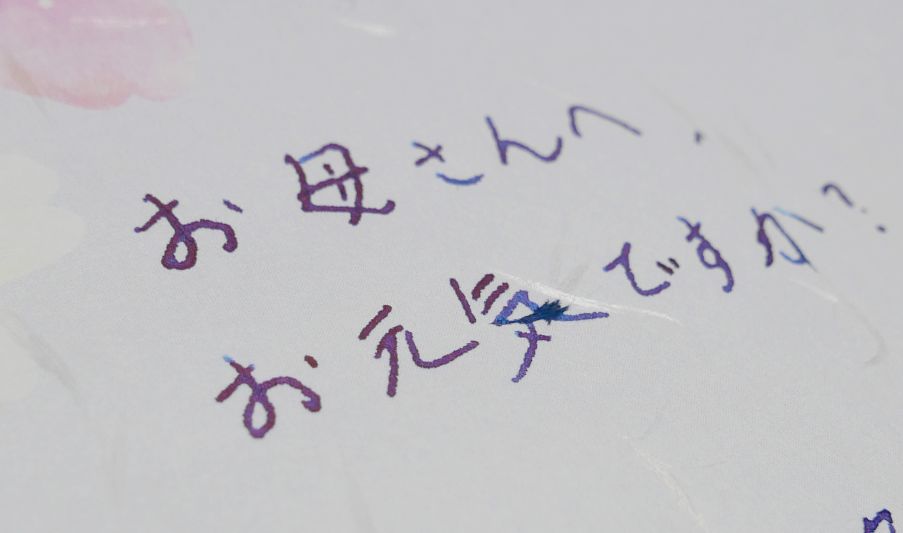 お母さんへ.
お元気ですか?